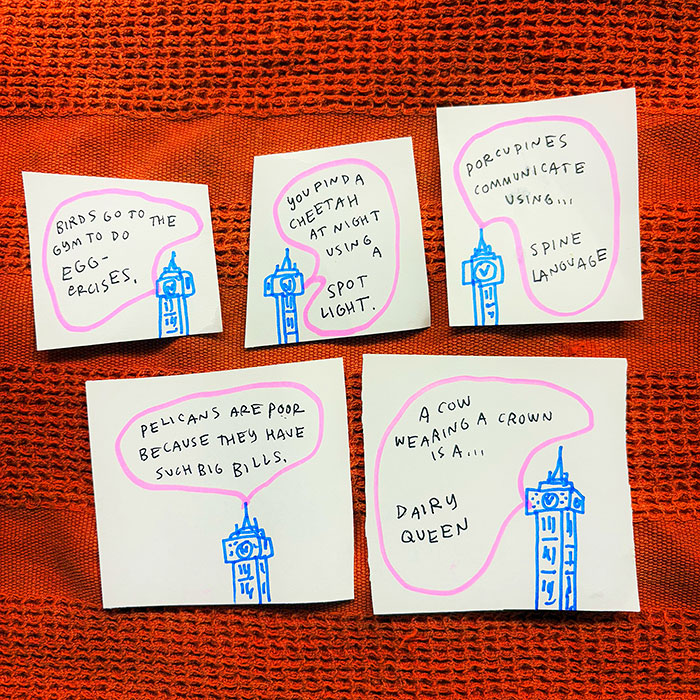 BIRDS GO TO THE
GYM TO DO
EGG-
ERCISES.
YOU FIND A
CHEETAH
AT NIGHT
USING
A
SPOT
LIGHT.
PORCUPINES
COMMUNICATE
USING...
SPINE
LANGUAGE
PELICANS ARE POOR
BECAUSE THEY HAVE
SUCH BIG BILLS.
A COW
WEARING A CROWN
IS A...
DAIRY
QUEEN